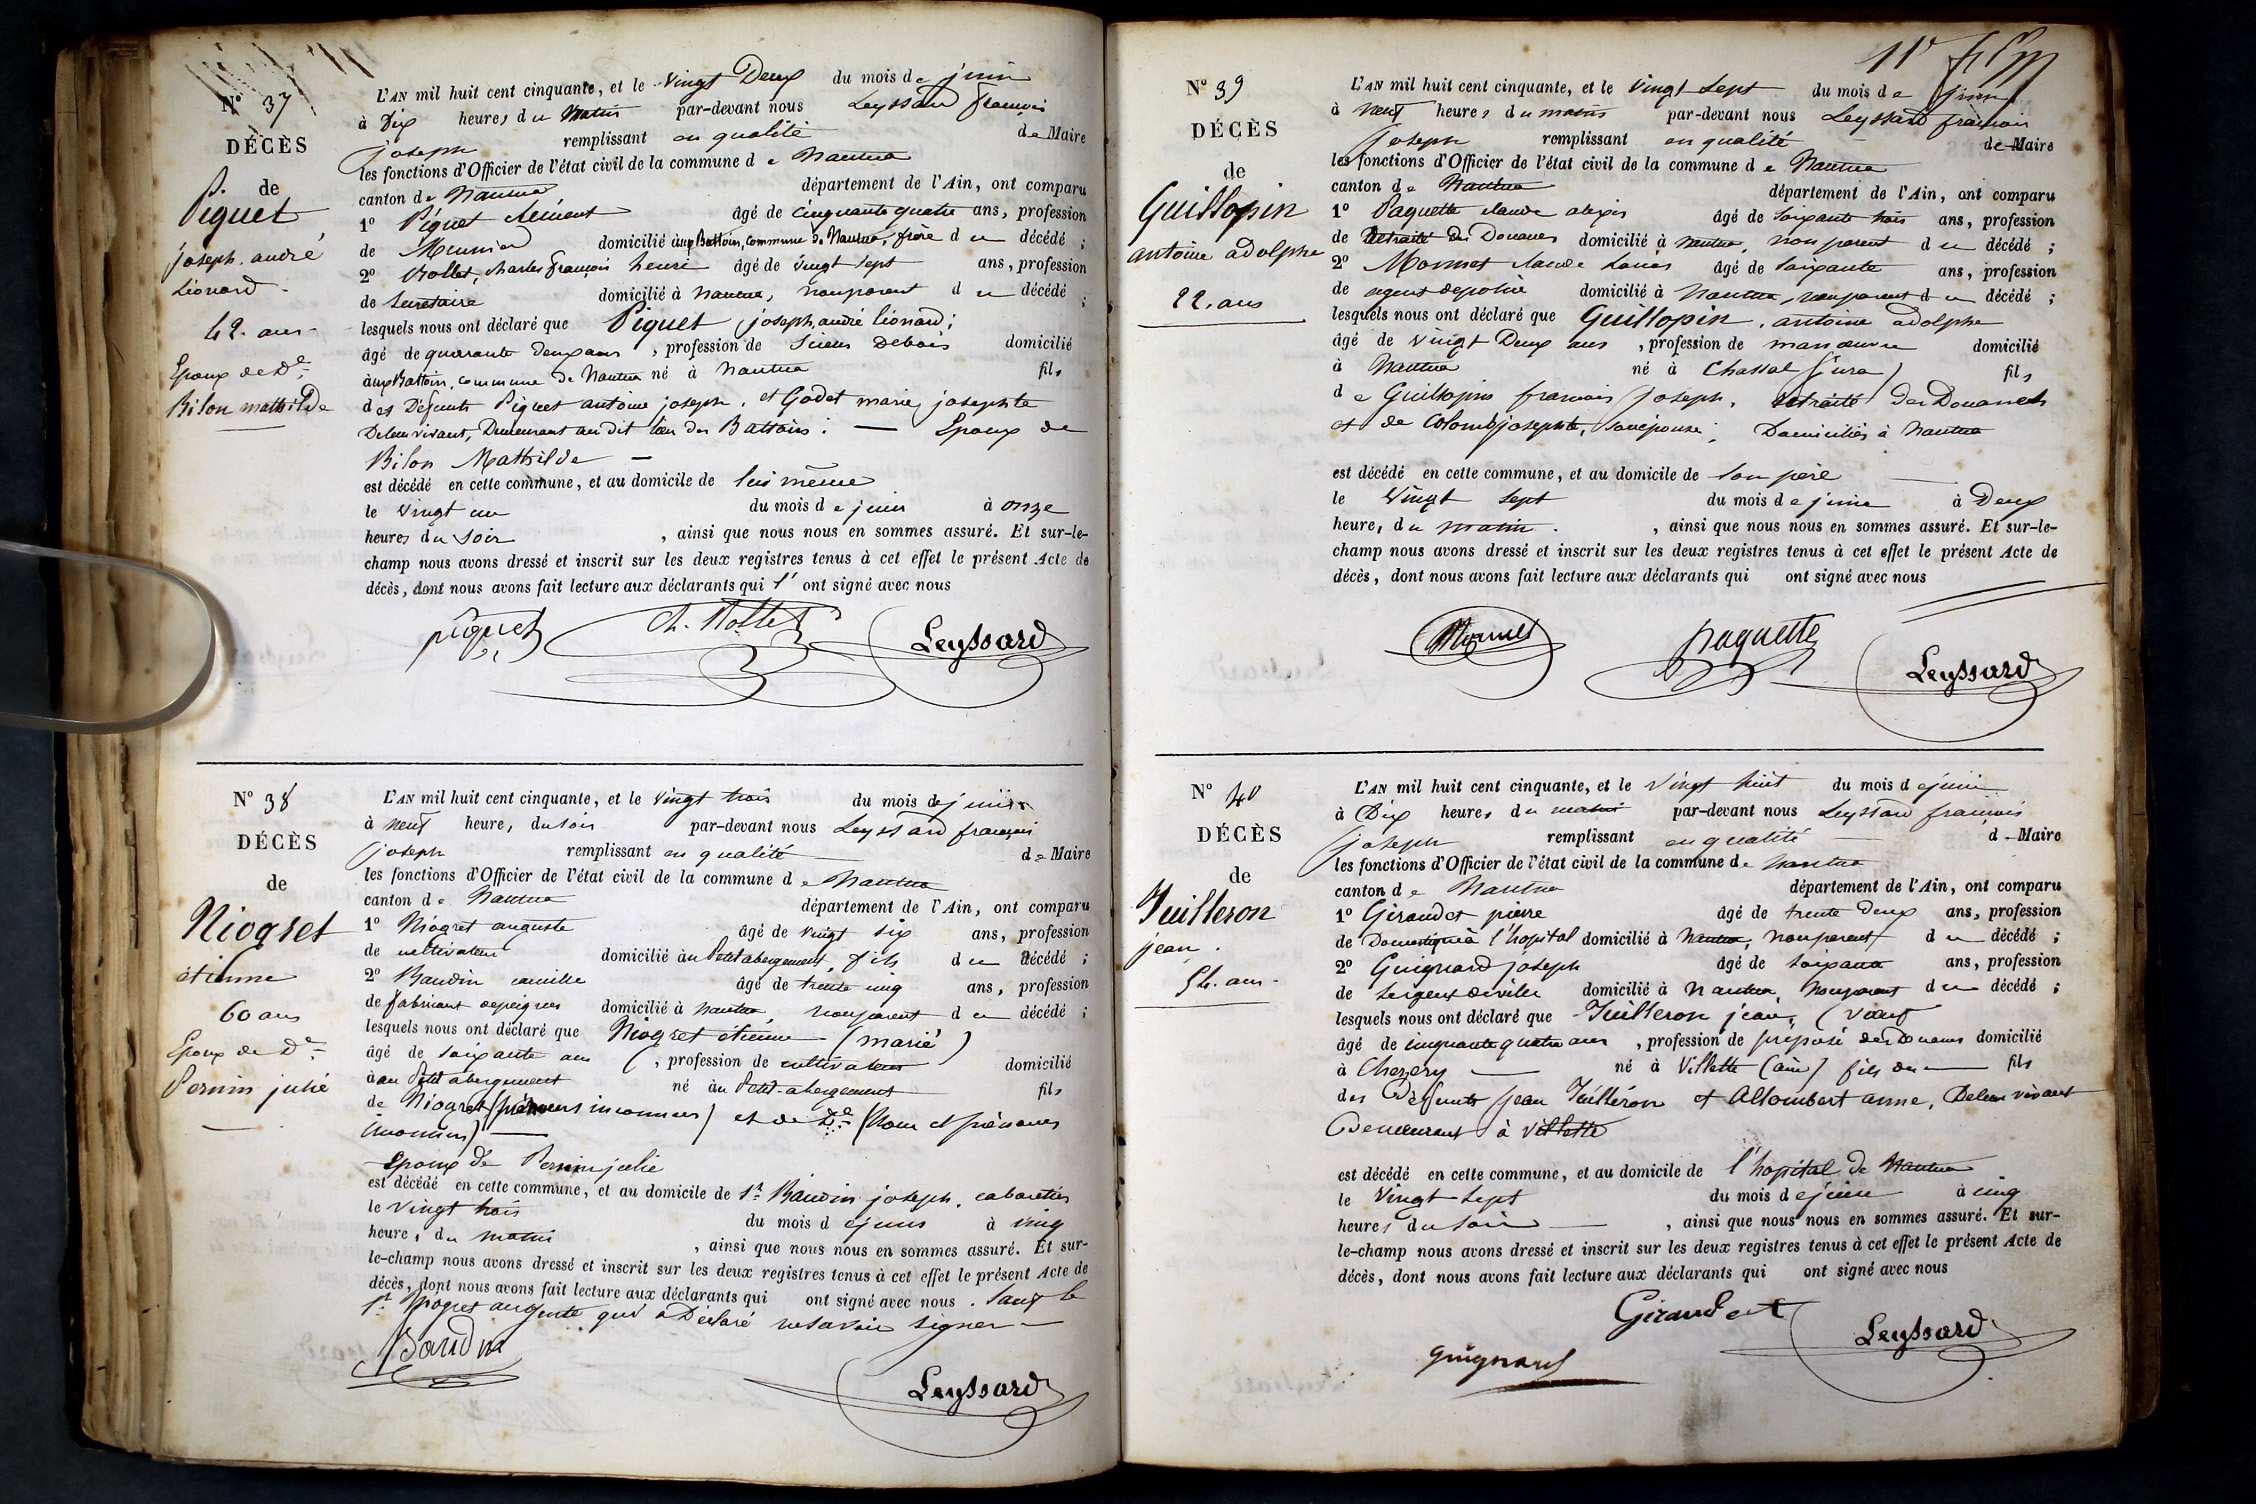 N° 37
DÉCÈS
de
Piguet
joseph andré
Léonard
42. ans
Epoux de De
Bilon mathilde
L'AN mil huit cent cinquante, et le vingt Deux du mois de juin
à Dix heures du matin par-devant nous Leyssard françois
joseph remplissant en qualité de Maire
les fonctions d'Officier de l'état civil de la commune de Nantua
canton de Nantua département de l'Ain, ont comparu
1° Piguet clément âgé de cinquante quatre ans, profession
de Meunier domicilié aux Battoirs, commune de Nantua, frère du décédé ;
2° Rollet, charles françois henri âgé de vingt sept ans, profession
de secrétaire domicilié à nantua, non parent du décédé ;
lesquels nous ont déclaré que Piguet joseph andré léonard ;
âgé de quarante deux ans, profession de Scieur Debois domicilié
aux Battoirs, commune de Nantua né à Nantua fils
des Défunts Piguet antoine joseph, et Godet marie josephte
Deleur vivant, Demeurant au dit lieu des Battoirs ; — Epoux de
Bilon Mathilde —
est décédé en cette commune, et au domicile de lui même
le vingt un du mois de juin à onze
heures du soir, ainsi que nous nous en sommes assuré. Et sur-le-
champ nous avons dressé et inscrit sur les deux registres tenus à cet effet le présent Acte de
décès, dont nous avons fait lecture aux déclarants qui l' ont signé avec nous
piguet Ch. Rollet Leyssard
N° 38
DÉCÈS
de
Niogret
étienne
60 ans
Epoux de De
Pernin julie
L'AN mil huit cent cinquante, et le vingt trois du mois de juin
à neuf heures du soir par-devant nous Leyssard françois
joseph remplissant en qualité de Maire
les fonctions d'Officier de l'état civil de la commune de Nantua
canton de Nantua département de l'Ain, ont comparu
1° Niogret auguste âgé de vingt six ans, profession
de cultivateur domicilié au Petit abergement, fils du décédé ;
2° Baudin camille âgé de trente cinq ans, profession
de fabricant depeignes domicilié à nantua, non parent du décédé ;
lesquels nous ont déclaré que Niogret étienne (marié)
âgé de soixante ans, profession de cultivateur domicilié
à au Petit abergement né au Petit-abergement fils
de Niogret (prénoms inconnus) et de De (Nom et prénoms
inconnus) —
Epoux de Pernin julie
est décédé en cette commune, et au domicile de Sr Baudin joseph, cabaretier
le vingt trois du mois de juin à cinq
heures du matin, ainsi que nous nous en sommes assuré. Et sur-
le-champ nous avons dressé et inscrit sur les deux registres tenus à cet effet le présent Acte de
décès, dont nous avons fait lecture aux déclarants qui ont signé avec nous. Sauf le
Sr Niogret auguste qui a Déclaré nesavoir signer —
Baudin
Leyssard
N° 39
DÉCÈS
de
Guillopin
antoine adolphe
22. ans
L'AN mil huit cent cinquante, et le vingt Sept du mois de juin
à neuf heures du matin par-devant nous Leyssard françois
joseph remplissant en qualité de Maire
les fonctions d'Officier de l'état civil de la commune de Nantua
canton de Nantua département de l'Ain, ont comparu
1° Paquette claude alexis âgé de soixante trois ans, profession
de Retraité des Douanes domicilié à nantua, non parent du décédé ;
2° Monnet claude Louis âgé de soixante ans, profession
de agent depolice domicilié à Nantua, non parent du décédé ;
lesquels nous ont déclaré que Guillopin, antoine adolphe
âgé de vingt Deux ans, profession de manœuvre domicilié
à Nantua né à Chassal (jura) fils
de Guillopin francois joseph, retraité des Douanes
et de Colomb josephte, son épouse, Domiciliés à Nantua
est décédé en cette commune, et au domicile de son père
le vingt sept du mois de juin à Deux
heures du matin, ainsi que nous nous en sommes assuré. Et sur-le-
champ nous avons dressé et inscrit sur les deux registres tenus à cet effet le présent Acte de
décès, dont nous avons fait lecture aux déclarants qui ont signé avec nous
Monnet paquette Leyssard
N° 40
DÉCÈS
de
Juilleron
jean.
54. ans
L'AN mil huit cent cinquante, et le vingt huit du mois de juin
à Dix heures du matin par-devant nous Leyssard françois
joseph remplissant en qualité de Maire
les fonctions d'Officier de l'état civil de la commune de nantua
canton de Nantua département de l'Ain, ont comparu
1° Giraudet pierre âgé de trente deux ans, profession
de Domestique à l'hopital domicilié à Nantua, non parent du décédé ;
2° Guignard joseph âgé de soixante ans, profession
de sergent deville domicilié à Nantua, non parent du décédé ;
lesquels nous ont déclaré que Juilleron jean, (veuf
âgé de cinquante quatre ans, profession de préposé des Douanes domicilié
à Chezery né à Villette (ain) fils de — fils
des Défunts jean Juilléron et Allombert anne, Deleur vivant
Demeurant à villette
est décédé en cette commune, et au domicile de l'hopital de Nantua
le vingt sept du mois de juin à cinq
heures du soir, ainsi que nous nous en sommes assuré. Et sur-
le-champ nous avons dressé et inscrit sur les deux registres tenus à cet effet le présent Acte de
décès, dont nous avons fait lecture aux déclarants qui ont signé avec nous
Giraudet Leyssard
guignard